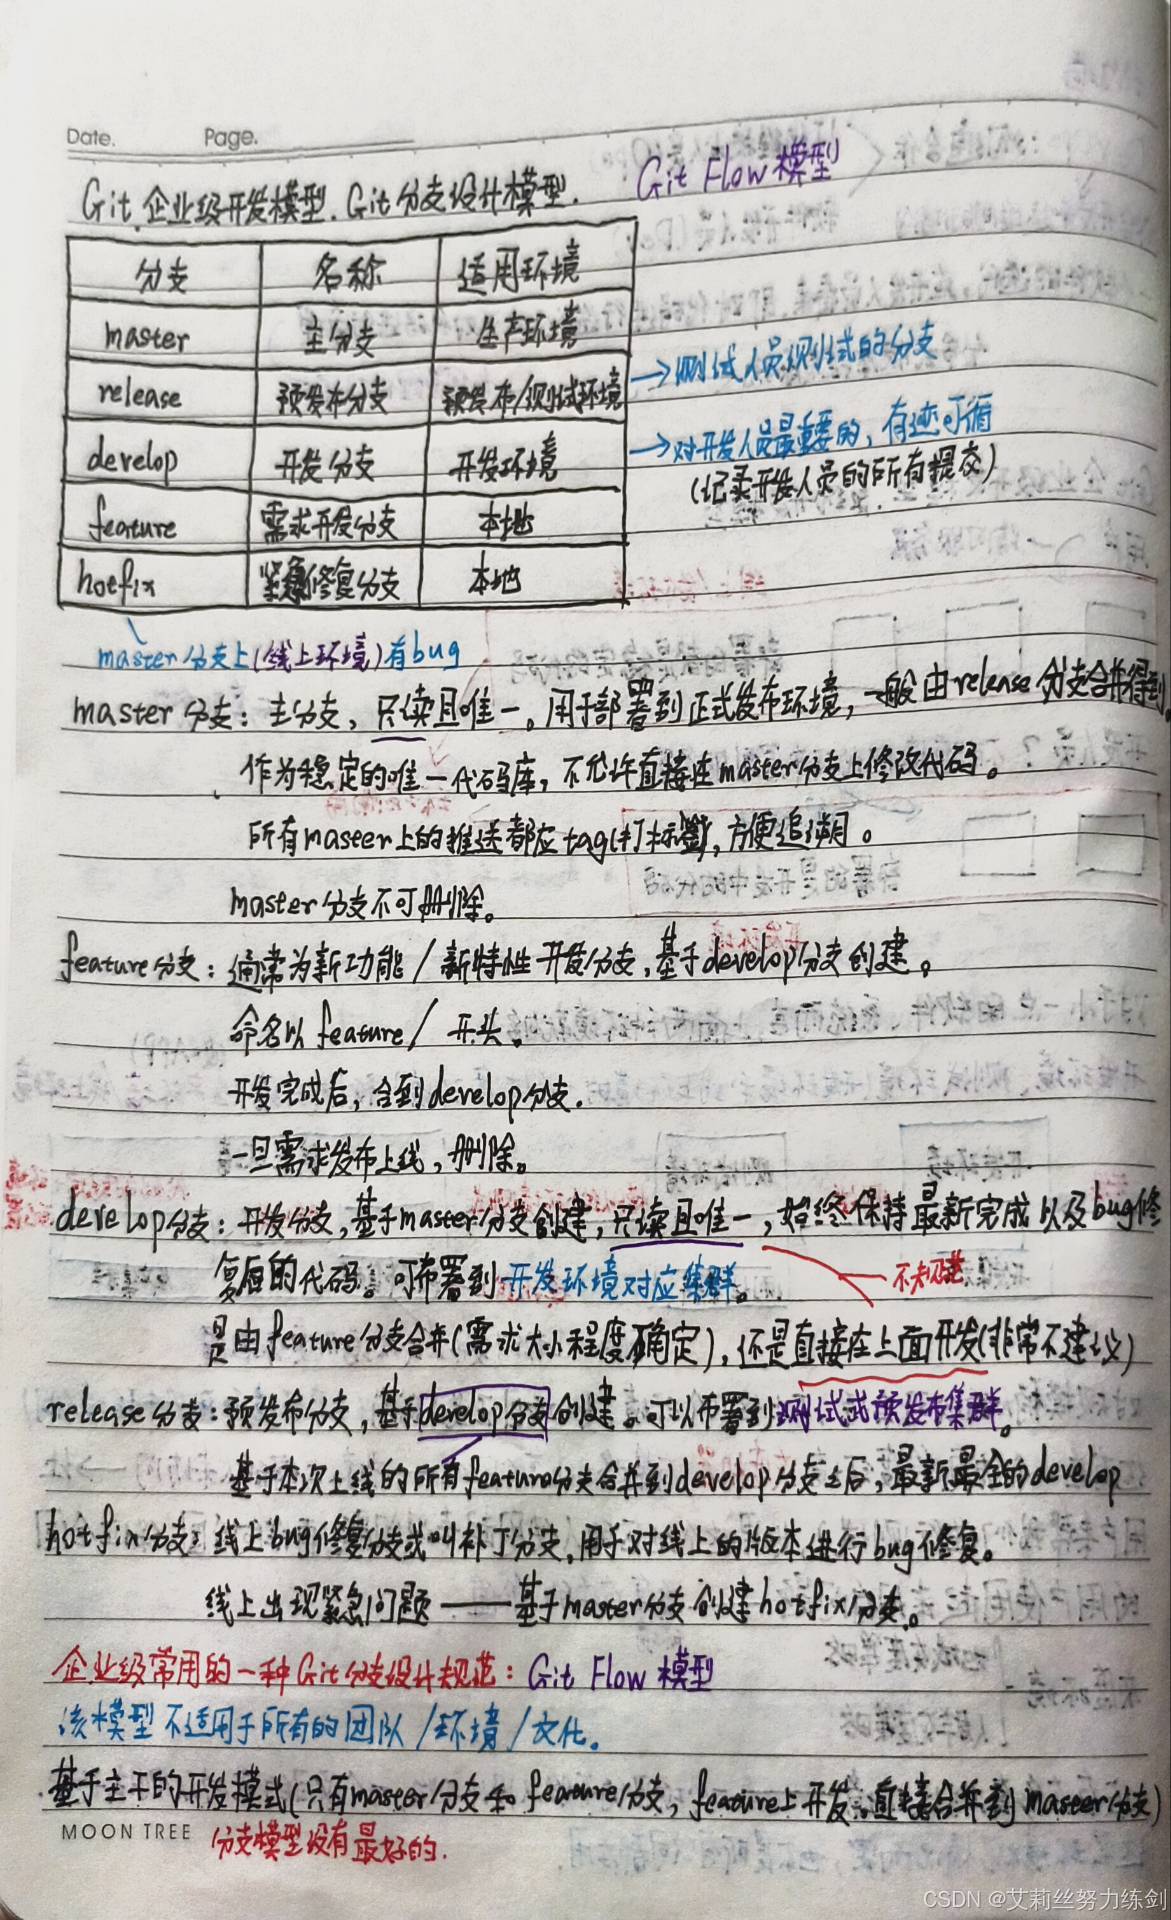 Date. Page.
Git 企业级开发模型. Git分支设计模型. Git Flow 模型
分支 名称 适用环境
master 主分支 生产环境
release 预发布分支 预发布/测试环境 →测试人员测试的分支
develop 开发分支 开发环境 →对开发人员最重要的，有迹可循
(记录开发人员的所有提交)
feature 需求开发分支 本地
hotfix 紧急修复分支 本地
master分支上(线上环境)有bug
master分支：主分支，只读且唯一。用于部署到正式发布环境，一般由release分支合并得到。
作为稳定的唯一代码库，不允许直接在master分支上修改代码。
所有master上的推送都应tag(打标签)，方便追溯。
master分支不可删除。
feature分支：通常为新功能/新特性开发分支，基于develop分支创建。
命名以 feature/ 开头。
开发完成后，合到develop分支.
一旦需求发布上线，删除。
develop分支：开发分支，基于master分支创建，只读且唯一，始终保持最新完成以及bug修
复后的代码。可布署到开发环境对应集群。 不规范
是由feature分支合并(需求大小程度确定)，还是直接在上面开发(非常不建议)
release分支：预发布分支，基于develop分支创建。可以布署到测试或预发布集群。
基于本次上线的所有feature分支合并到develop分支之后，最新最全的develop
hotfix分支：线上bug修复分支或叫补丁分支，用于对线上的版本进行bug修复。
线上出现紧急问题——基于master分支创建hotfix分支。
企业级常用的一种Git分支设计规范：Git Flow 模型
该模型不适用于所有的团队/环境/文化。
基于主干的开发模式(只有master分支和feature分支，feature上开发，直接合并到master分支)
MOON TREE 分支模型没有最好的.
CSDN @艾莉丝努力练剑